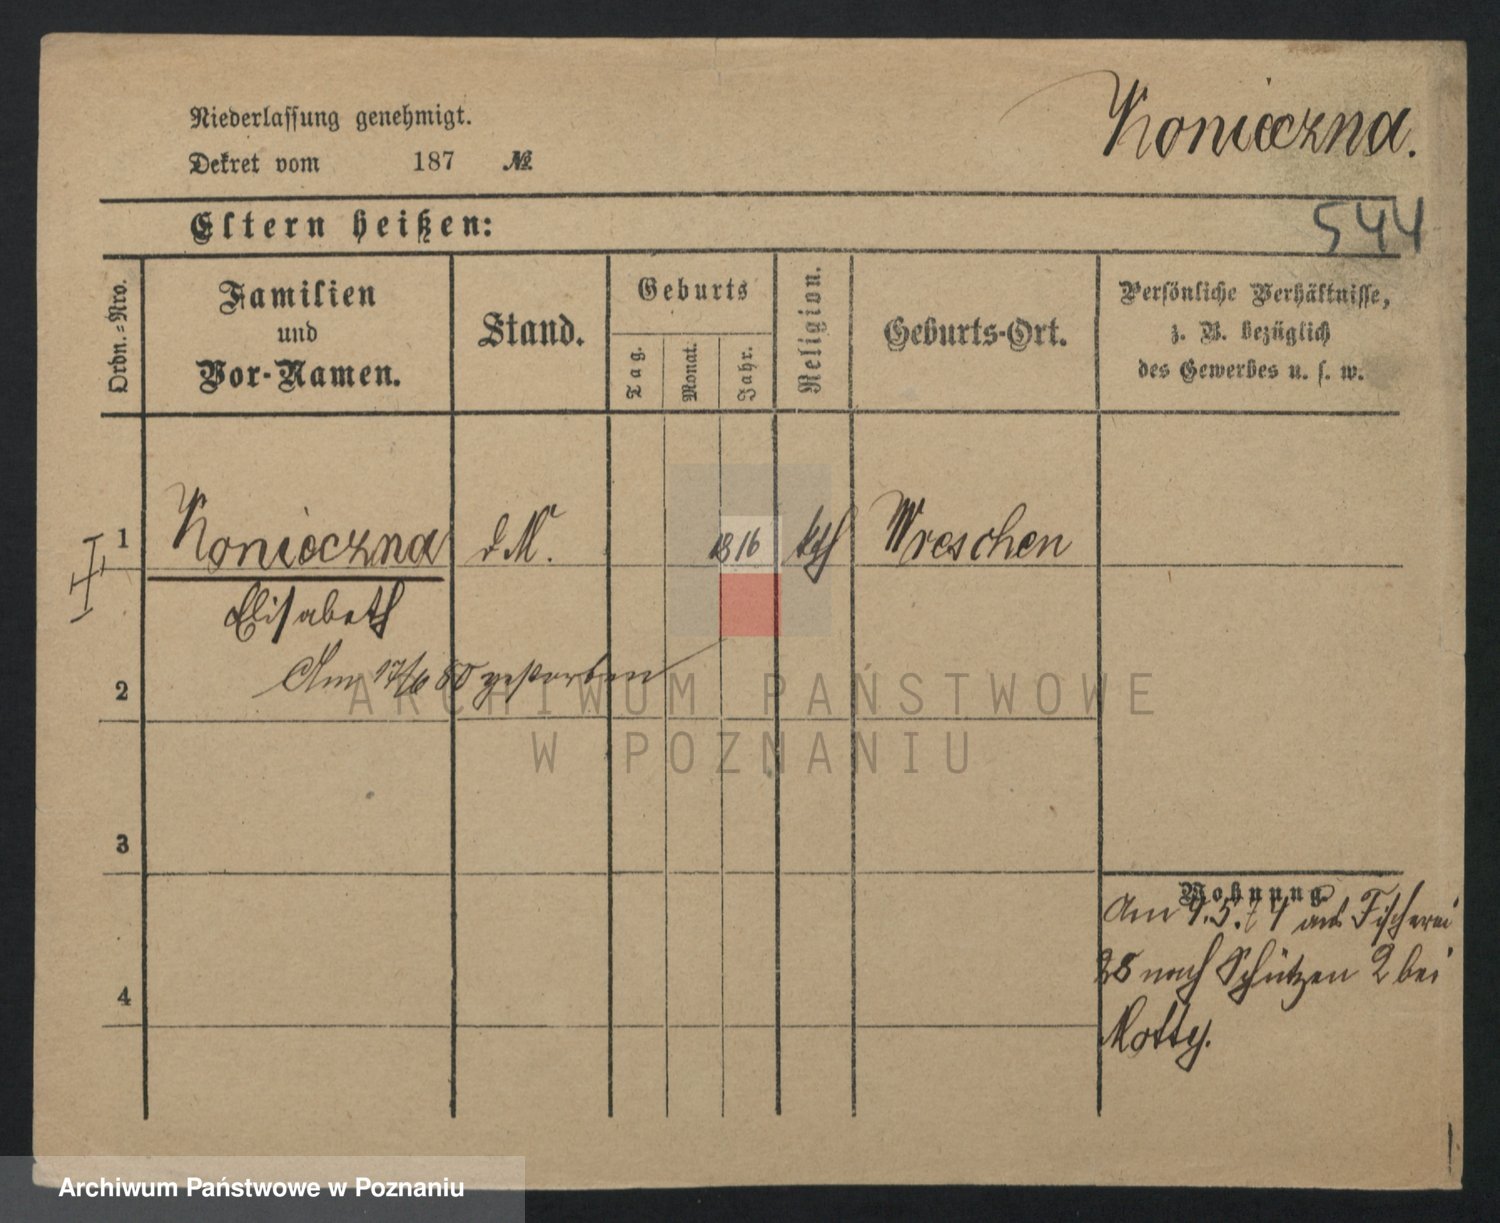 Konieczna.
Niederlassung genehmigt.
Dekret vom 187 №
544
Eltern heißen:
Ordn.=Nro.
Familien
und
Vor-Namen.
Stand.
Geburts
Tag.
Monat.
Jahr.
Religion.
Geburts-Ort.
Persönliche Verhältnisse,
z. B. bezüglich
des Gewerbes u. s. w.
1 Konieczna d M. 1816 kth Wreschen
Elisabeth
2 Am 17/6 80 gestorben
ARCHIWUM PAŃSTWOWE
W POZNANIU
3
Wohnung
Am 9.5.74 aus Fischerei
28 nach Schützen 2 bei
4
Motty.
Archiwum Państwowe w Poznaniu